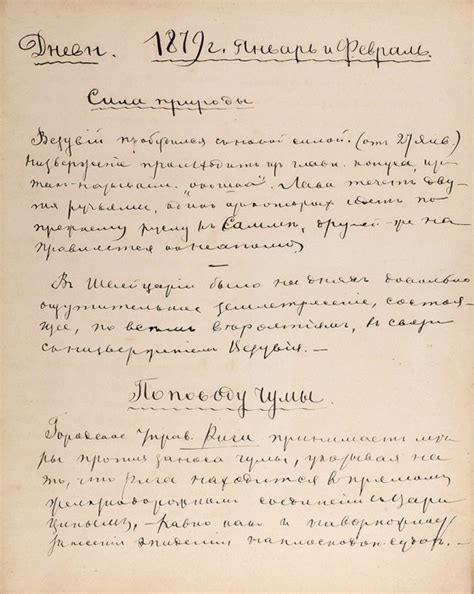 Дневн. 1879 г. Январь и Февраль.
Сила природы
Везувій пробудился съ новой силой. (отъ 27 Янв.)
Изверженія происходитъ изъ главн. конуса, из
такъ-называем. Лава течетъ дву
мя ручьями, одинъ изъ которыхъ по
прежнему руслу къ другой-же на
правляется
Въ Швейцаріи было на дняхъ довольно
ощутительное землетрясеніе, состоя
щее, по всѣмъ вѣроятіямъ, въ связи
съ изверженіемъ Везувія. —
По поводу Чумы.
Городское Управ. Риги принимаетъ мѣ
ры противъ заноса чумы, указывая на
то, что Рига находится въ прямомъ
желѣзнодорожномъ соединеніи съ Цари
цынымъ, — равно какъ и
эпидеміи на